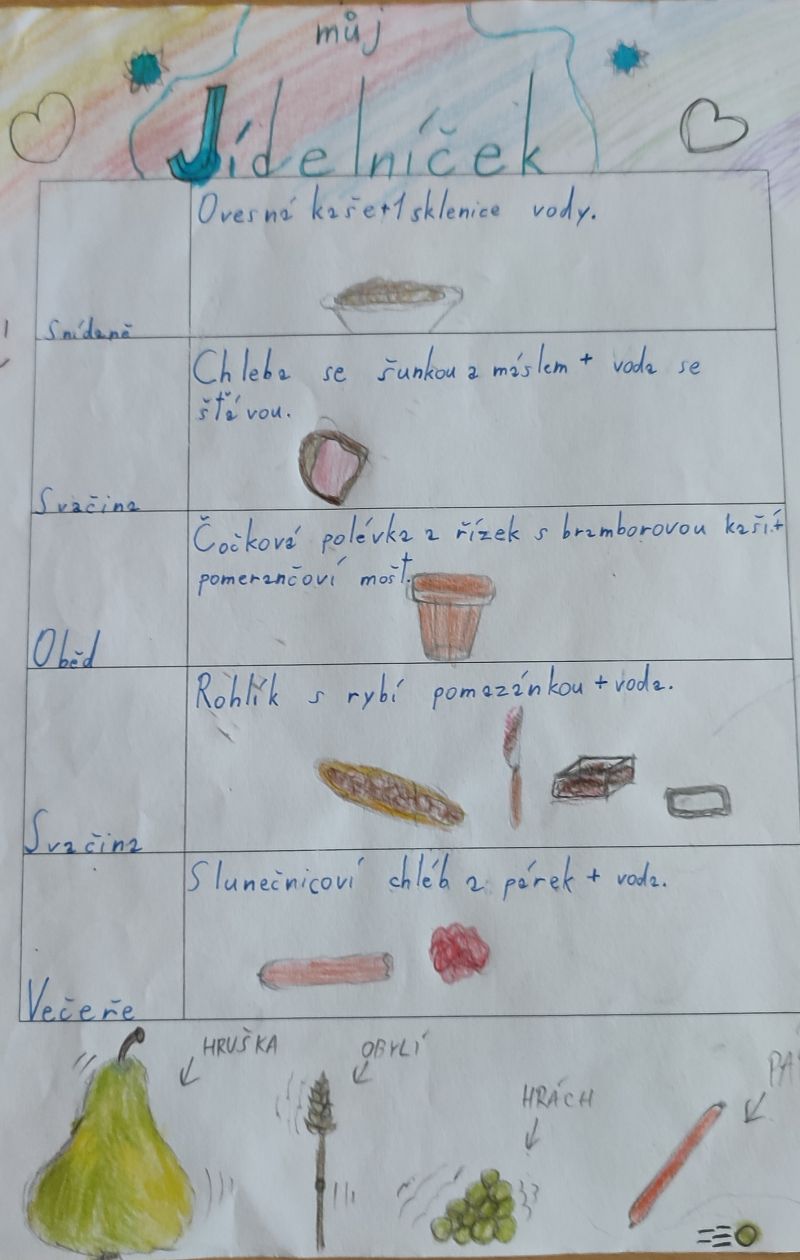 můj
Jídelníček
Ovesná kaše+1 sklenice vody.
Snídaně
Chleba se šunkou a máslem + voda se
šťávou.
Svačina
Čočková polévka a řízek s bramborovou kaší+
pomerančoví mošt.
Oběd
Rohlík s rybí pomazánkou + voda.
Svačina
Slunečnicoví chléb a párek + voda.
Večeře
HRUŠKA
OBYLÍ
HRÁCH